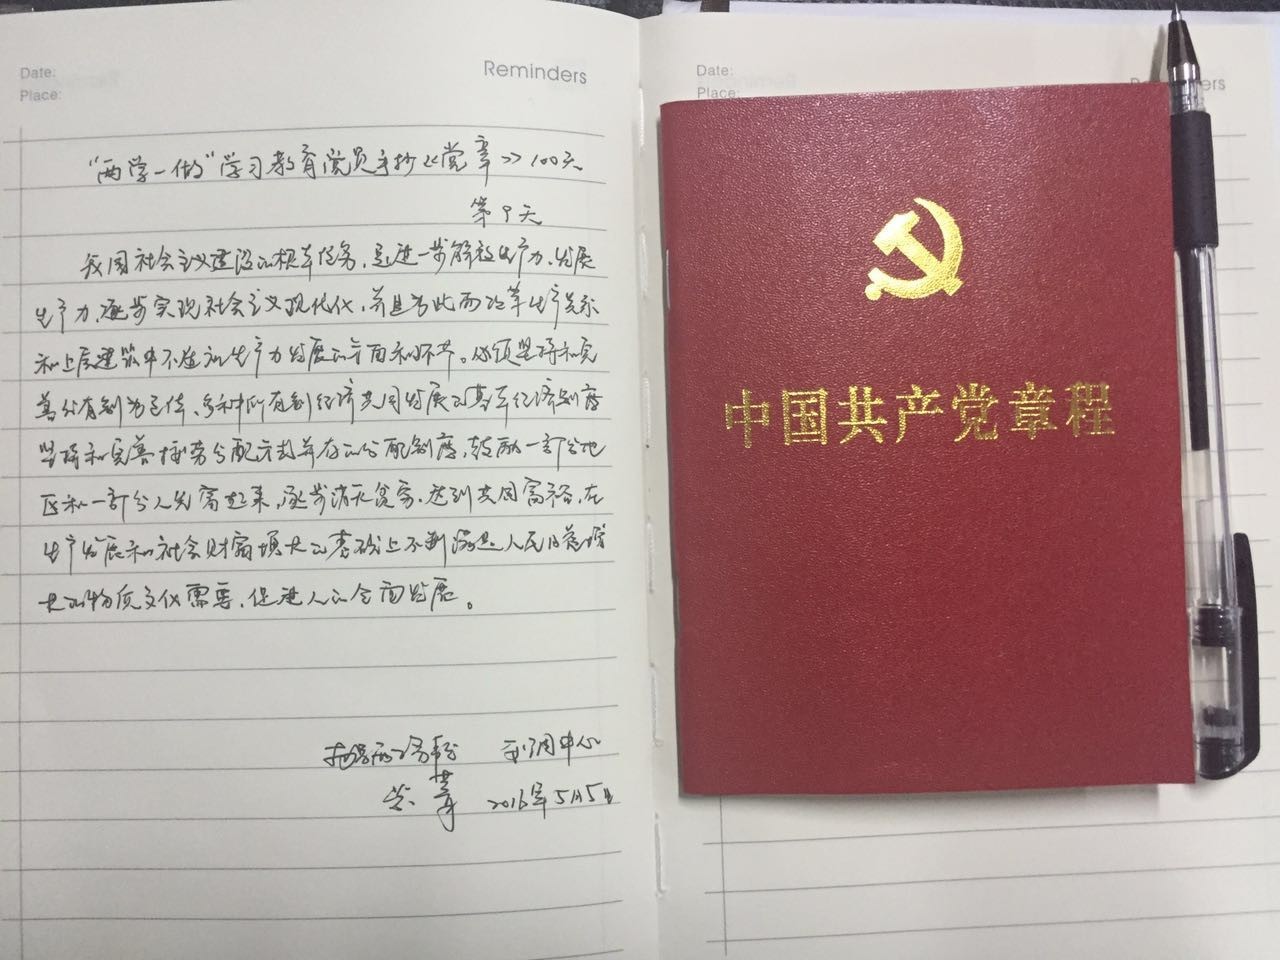 Date:
Place:
Reminders
"两学一做"学习教育党员手抄《党章》100天
第9天
我国社会主义建设的根本任务，是进一步解放生产力，发展
生产力，逐步实现社会主义现代化，并且为此而改革生产关系
和上层建筑中不适应生产力发展的方面和环节。必须坚持和完
善公有制为主体、多种所有制经济共同发展的基本经济制度
坚持和完善按劳分配方式并存的分配制度，鼓励一部分地
区和一部分人先富起来，逐步消灭贫穷，达到共同富裕，在
生产发展和社会财富增长的基础上不断满足人民日益增
长的物质文化需要，促进人的全面发展。
中心
2016年5月5日
Date:
Place:
中国共产党章程